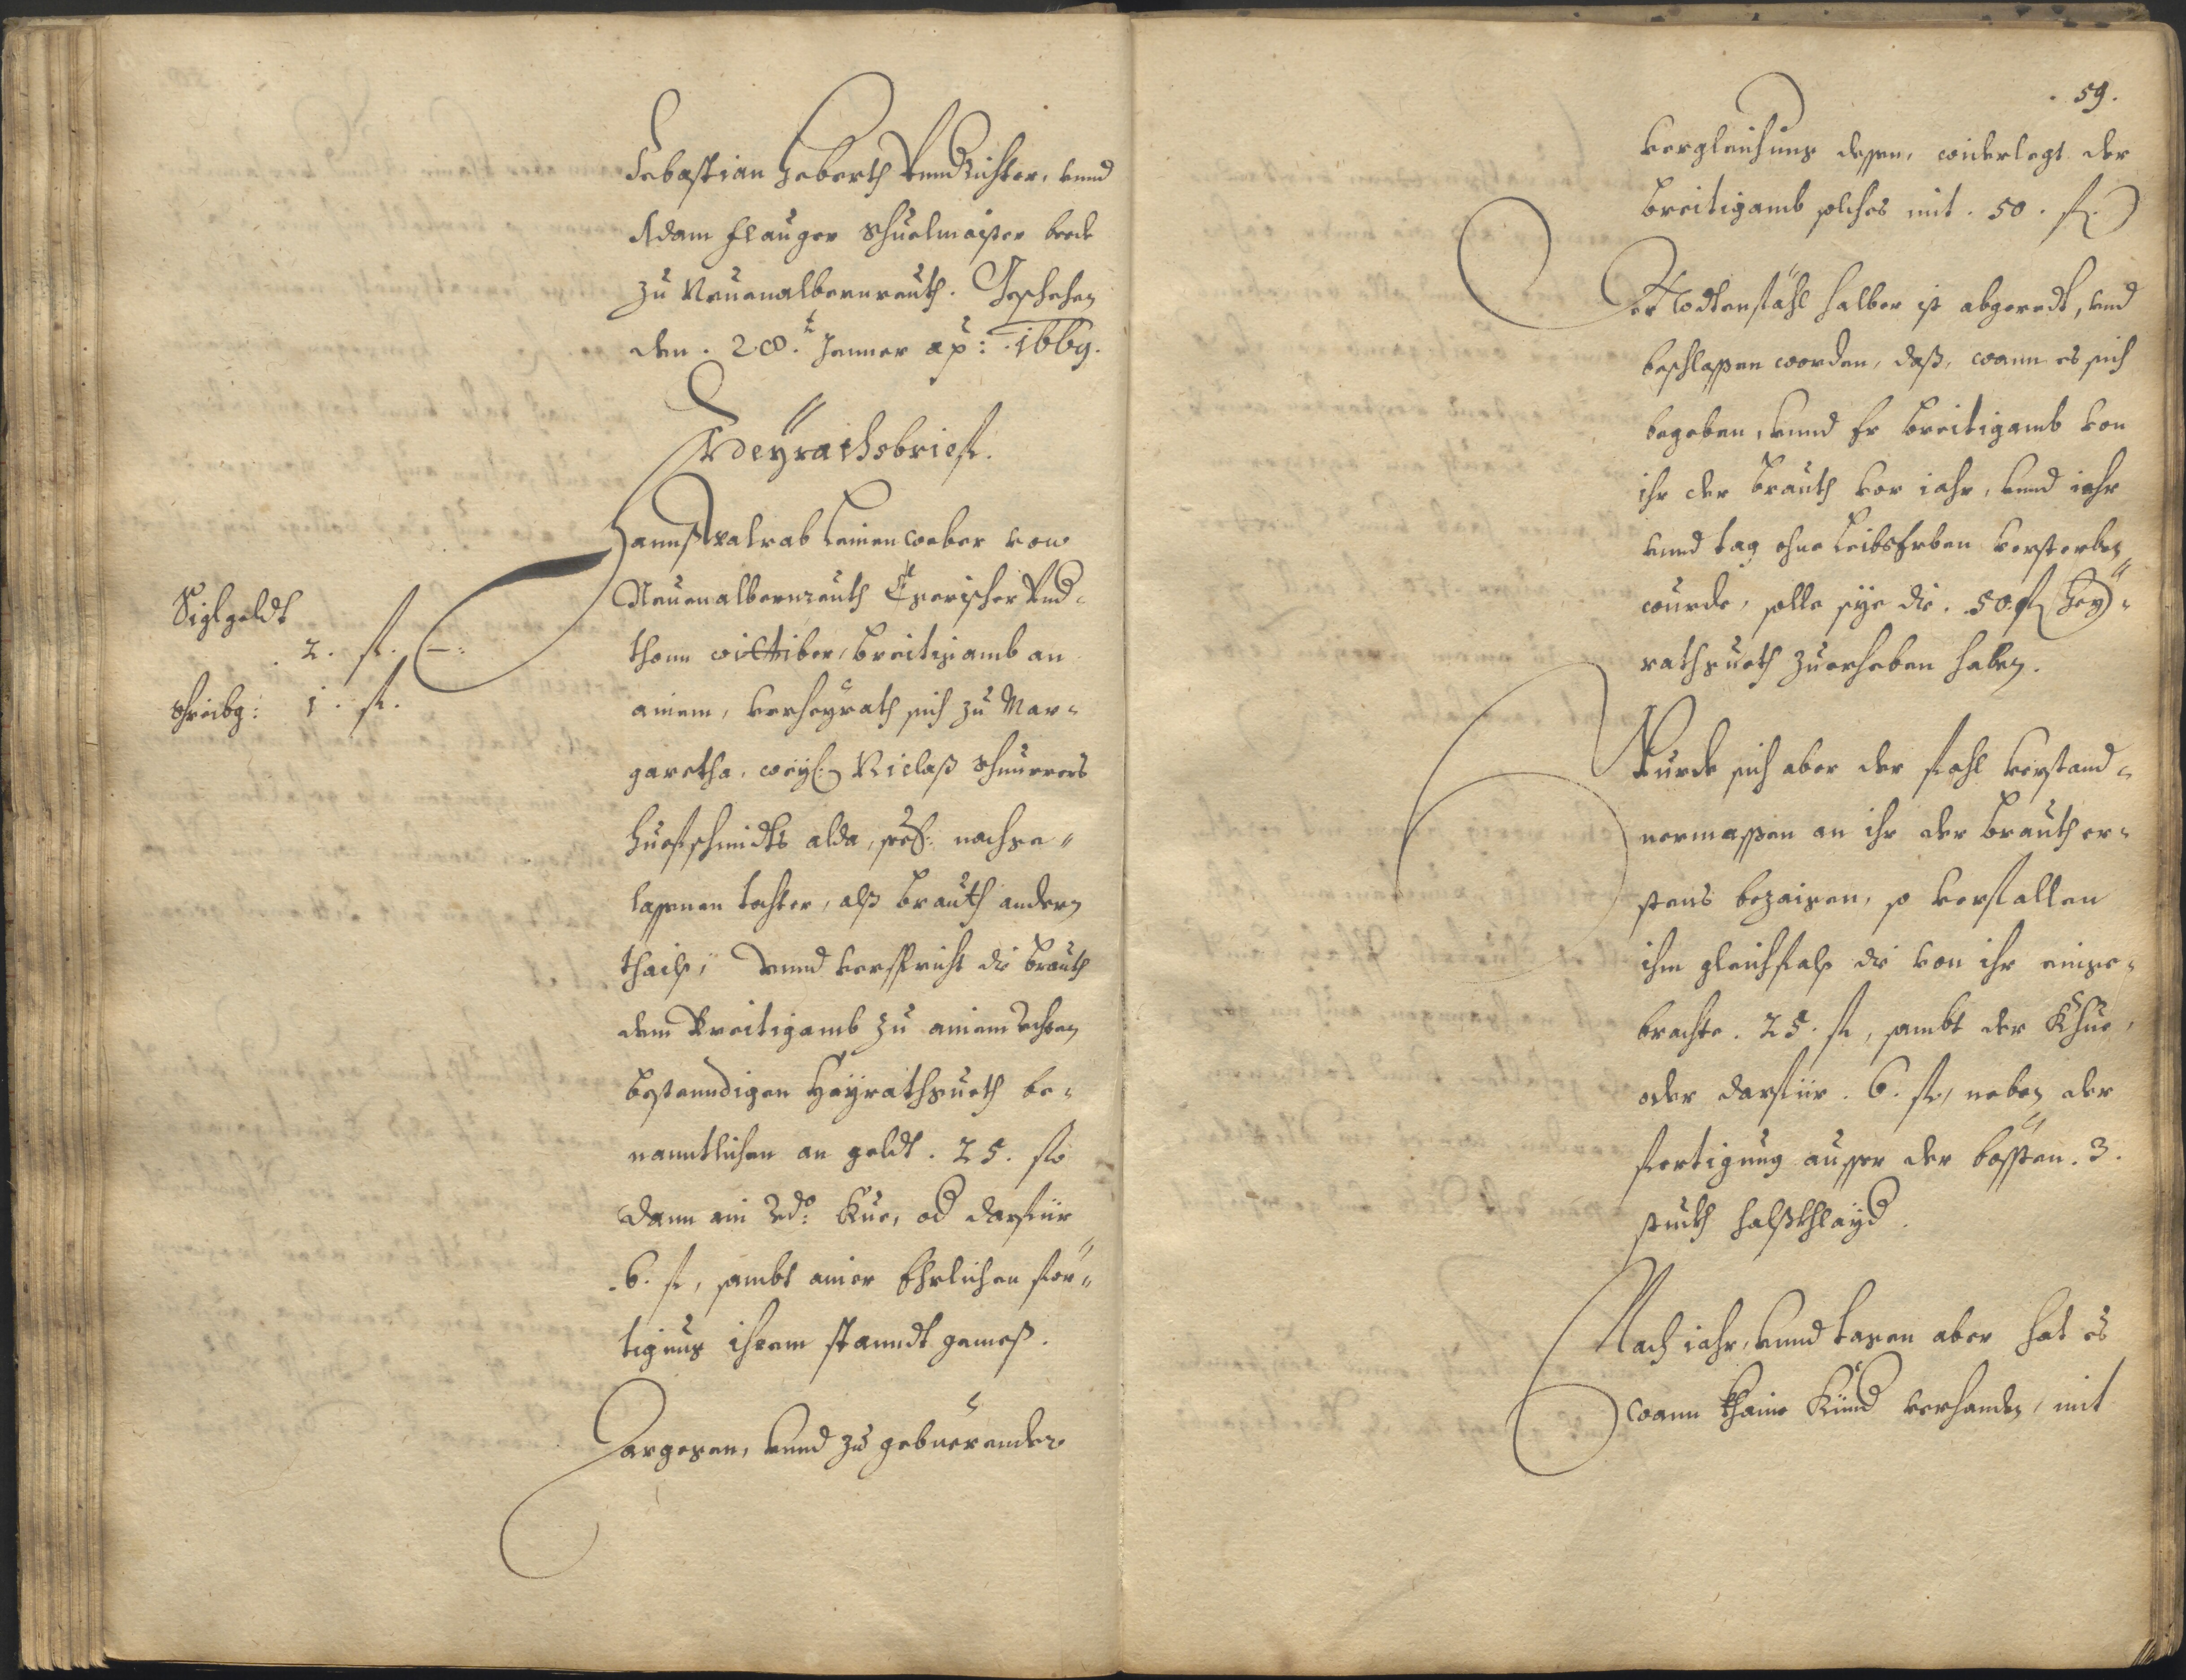 Sebastian Heberth Undrichter, vnnd
Adam Flauger Schuelmaister beede
zu Neuenalbernreuth. Geschehen
den. 28.t Jenner ao: .1669.
Heyrathsbrief.
Hannß Walrab Leinenweber von
Neuenalbernreuth Egerischer Und-
thonn wittiber, Breitigamb an
ainem, verheyrath sich zu Mar-
garetha, weyl: Niclaß Schnurrers
Huefschmidts alda, seel: nachge-
lassenen tochter, alß Brauth andern
thailß, Vnnd verspricht die Brauth
dem Breitigamb zu ainem rechten
bestenndigen Heyrathgueth be-
nanntlichen an geldt. 25. fl
dann ain Rdo: Kue, od darfür
.6. fl, sambt ainer Ehrlichen för-
tigung ihrem standt gemeß.
Dargegen, vnnd zu gebüerender
Siglgeldt
2. fl. —:
Schreibg: 1. fl.
. 59.
vergleichung dessen, widerlegt der
Breitigamb solches mit . 50 . fl.
Der Todtenfähl halber ist abgeredt, vnd
beschlossen worden, daß, wann es sich
begeben, vnnd Er Breitigamb von
ihr der Brauth vor jahr, vnnd jahr
vnnd tag ohne Leibs Erben versterben
wurde, solle sye die . 50 fl Hey-
rathgueth zuerheben haben.
Wurde sich aber der fahl verstand-
nermassen an ihr der Brauth er-
stens bezaigen, so verfallen
ihm gleichfalß die von ihr einge-
brachte . 25 . fl, sambt der Khue,
oder darfür . 6. fl, neben der
fertigung ausser der bössten . 3.
stuckh halßkhlayd.
Nach jahr, vnnd tagen aber hat es
wann khaine Künd verhanden, mit